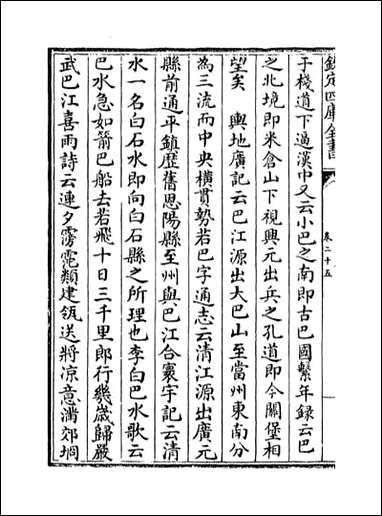 欽定四庫全書
卷二十五
于棧道下逼漢中又云小巴之南即古巴國繫年録云巴
之北境即米倉山下視興元出兵之孔道即今關堡相
望矣　輿地廣記云巴江源出大巴山至當州東南分
為三流而中央橫貫勢若巴字通志云清江源出廣元
縣前通平鎮歴舊恩陽縣至州與巴江合寰宇記云清
水一名白石水即向白石縣之所理也李白巴水歌云
巴水急如箭巴船去若飛十日三千里郎行幾歳歸嚴
武巴江喜雨詩云連夕雱霓纇建瓴送將凉意滿郊坰